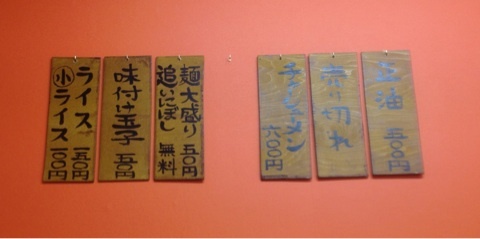 正油 五〇〇円
売り切れ
チャーシューメン 六〇〇円
麺大盛り 五〇円
追いにぼし 無料
味付け玉子 五〇円
ライス 一五〇円
㊥ライス 一〇〇円